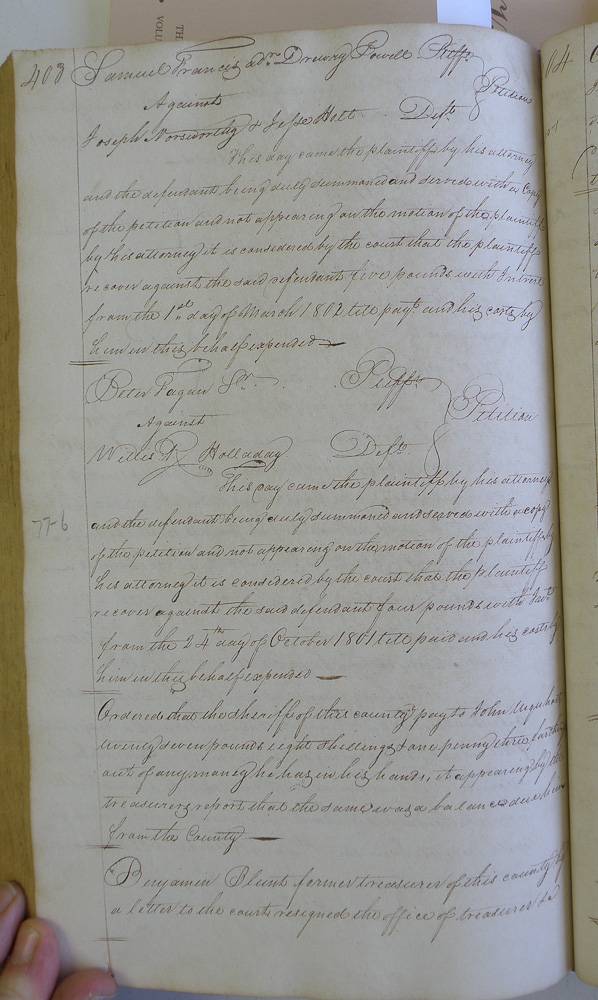 403 Samuel Francis adr. Drewry Powell Pltff.
Against Petition
Joseph Norsworthy & Jesse Holt Defts.
This day came the plaintiff by his attorney
and the defendants being duly summoned and served with a copy
of the petition and not appearing on the motion of the plaintiff
by his attorney it is considered by the court that the plaintiff
recover against the said defendants five pounds with Interest
from the 1st day of March 1802 till payt. and his costs by
him in this behalf expended
Peter Fagan Sr. Pltff.
Against Petition
Willis Holladay Deft.
This day came the plaintiff by his attorney
77-6
and the defendant being duly summoned and served with a copy
of the petition and not appearing on the motion of the plaintiff by
his attorney it is considered by the court that the plaintiff
recover against the said defendant four pounds with Int.
from the 24th day of October 1801 till paid and his costs by
him in this behalf expended
Ordered that the sheriff of this county pay to John Urquhart
twenty seven pounds eight shillings & one penny three farthings
out of any money he has in his hands, it appearing by the
treasurers report that the same was a balance due him
from the County
Benjamin Blunt former treasurer of this county by
a letter to the court resigned the office of treasurer &